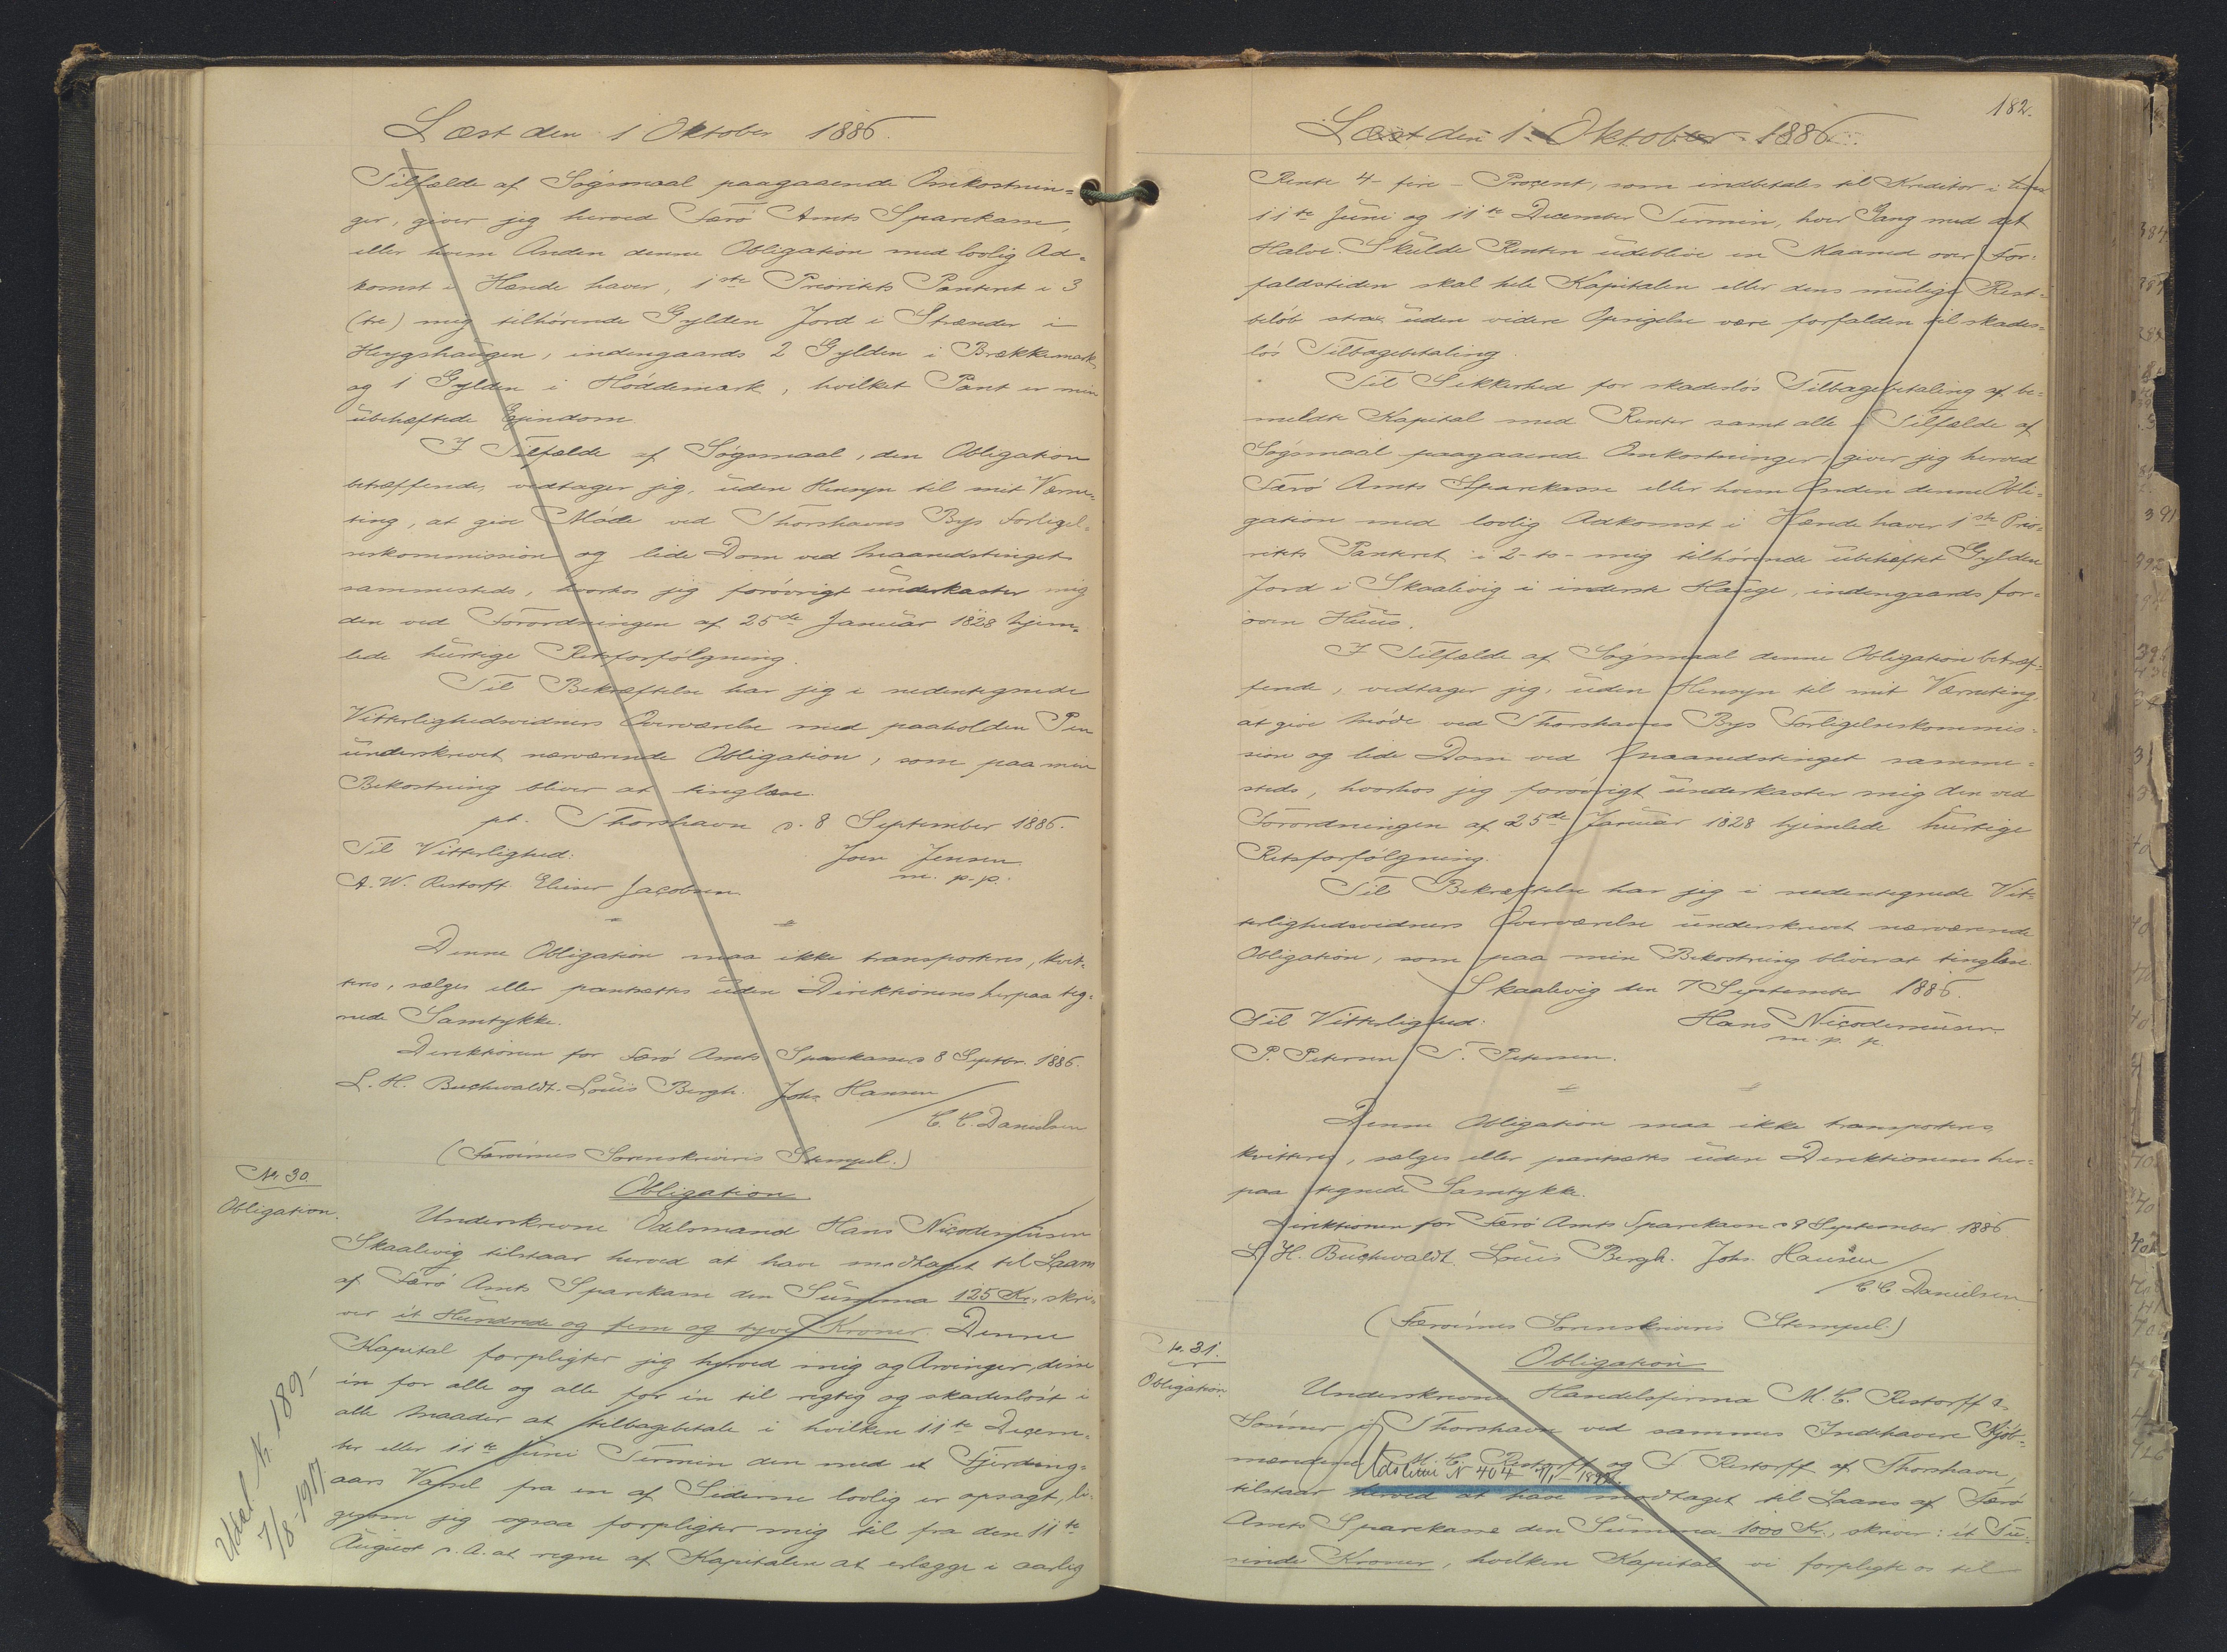 Læst den 1 Oktober 1886.
Tilfælde af Søgsmaal paagaaende Omkostnin=
ger, giver jeg herved Færø Amts Sparekasse,
eller hvem Anden denne Obligation med lovlig Ad=
komst i Hænde haver, 1ste Prioritets Panteret i 3
(tre) mig tilhørende Gylden Jord i Strænder i
Heygshaugen, indengaards 2 Gylden i Brekkemark
og 1 Gylden i Høddemark, hvilket Pant er min
übehæftede Ejendom.
I Tilfælde af Søgsmaal, den Obligation
betræffende, vedtager jeg, üden Hensyn til mit Værne=
ting, at give Møde ved Thorshavns Bys Forligel=
seskommission og lide Dom ved Maanedstinget
sammesteds, hvorhos jeg forøvrigt ünderkaster mig
den ved Forordningen af 25de Januar 1828 hjem=
lede hürtige Retsforfølgning.
Til Bekræftelse har jeg i nedentegnede
Vitterlighedsvidners Overværelse med paaholden Pen
ünderskrevet nærværende Obligation, som paa min
Bekostning bliver at tinglæse.
pt. Thorshavn d. 8 September 1886.
Til Vitterlighed: Joen Jensen
A. W. Restorff. Elieser Jacobsen. m. p. p.
Denne Obligation maa ikke transporteres, kvit=
teres, sælges eller pantsættes üden Direktionens herpaa teg=
nede Samtykke.
Direktionen for Færø Amts Sparekasse d 8 Septbr. 1886.
L. H. Buchwaldt. Louis Bergh. Johs Hansen
/ C. C. Danielsen
(Færøernes Sorenskriveris Stempel.)
No. 30.
Obligation.
Obligation
Underskrevne Odelsmand Hans Nicodemüsen
Skaalevig tilstaar herved at have modtaget til Laans
af Færø Amts Sparekasse den Sümma 125 Kr., skri=
ver ét Hündrede og fem og tyve Kroner. Denne
Kapital forpligter jeg herved mig og Arvinger, disse
én for alle og alle for én til rigtig og skadesløst i
alle Maader at tilbagebetale i hvilken 11te Decem=
ber eller 11te Juni Termin den med et Fjerding=
aars Varsel fra en af Siderne lovlig er opsagt, li=
gesom jeg ogsaa forpligter mig til fra den 11te
August d. A. at regne af Kapitalen at erlægge i aarlig
Udsl. N. 189-
7/8-1917
182.
Læst den 1 Oktober 1886.
Rente 4- fire - Procent, som indbetales til Kreditor i hver
11te Juni og 11te December Termin, hver Gang med det
Halve. Skülde Renten üdeblive en Maaned over For=
faldstiden skal hele Kapitalen eller dens mülige Rest=
beløb strax üden videre Opsigelse være forfalden til skades=
løs Tilbagebetaling.
Til Sikkerhed for skadesløs Tilbagebetaling af be=
meldte Kapital med Renter samt alle i Tilfælde af
Søgsmaal paagaaende Omkostninger, giver jeg herved
Færø Amts Sparekasse eller hvem Anden denne Obli=
gation med lovlig Adkomst i Hænde haver 1ste Prio=
ritets Panteret i 2- to- mig tilhørende übehæftet Gylden
Jord i Skaalevig i inderste Hauge, indengaards for=
oven Hüüs.
I Tilfælde af Søgsmaal denne Obligation betræf=
fende, vedtager jeg, üden Hensyn til mit Værneting,
at give Møde ved Thorshavns Bys Forligelseskommis=
sion og lide Dom ved Maanedstinget samme=
steds, hvorhos jeg forøvrigt ünderkaster mig den ved
Forordningen af 25de Januar 1828 hjemlede hürtige
Retsforfølgning.
Til Bekræftelse har jeg i nedentegnede Vit=
terlighedsvidners Overværelse ünderskrevet nærværende
Obligation, som paa min Bekostning bliver at tinglæse.
Skaalevig den 7 September 1886.
Til Vitterlighed: Hans Nicodemüsen
P. Petersen T. Petersen. m. p. p.
Denne Obligation maa ikke transporteres,
kvitteres, sælges eller pantsættes üden Direktionens her=
paa tegnede Samtykke.
Direktionen for Færø Amts Sparekasse d 8 September 1886.
L. H. Buchwaldt. Louis Bergh. Johs. Hansen
/ C C Danielsen
(Færøernes Sorenskriveris Stempel.)
No. 31.
Obligation
Obligation
Underskrevne Handelsfirma M. C. Restorff &
Sønner i Thorshavn ved sammes Indehavere Kjøb=
mændene M. C. Restorff og F Restorff af Thorshavn,
Udslettet N 404
tilstaar herved at have modtaget til Laans af Færø
Amts Sparekasse den Sümma 1000 Kr., skriver: ét Tü=
sinde Kroner, hvilken Kapital vi forpligte os til